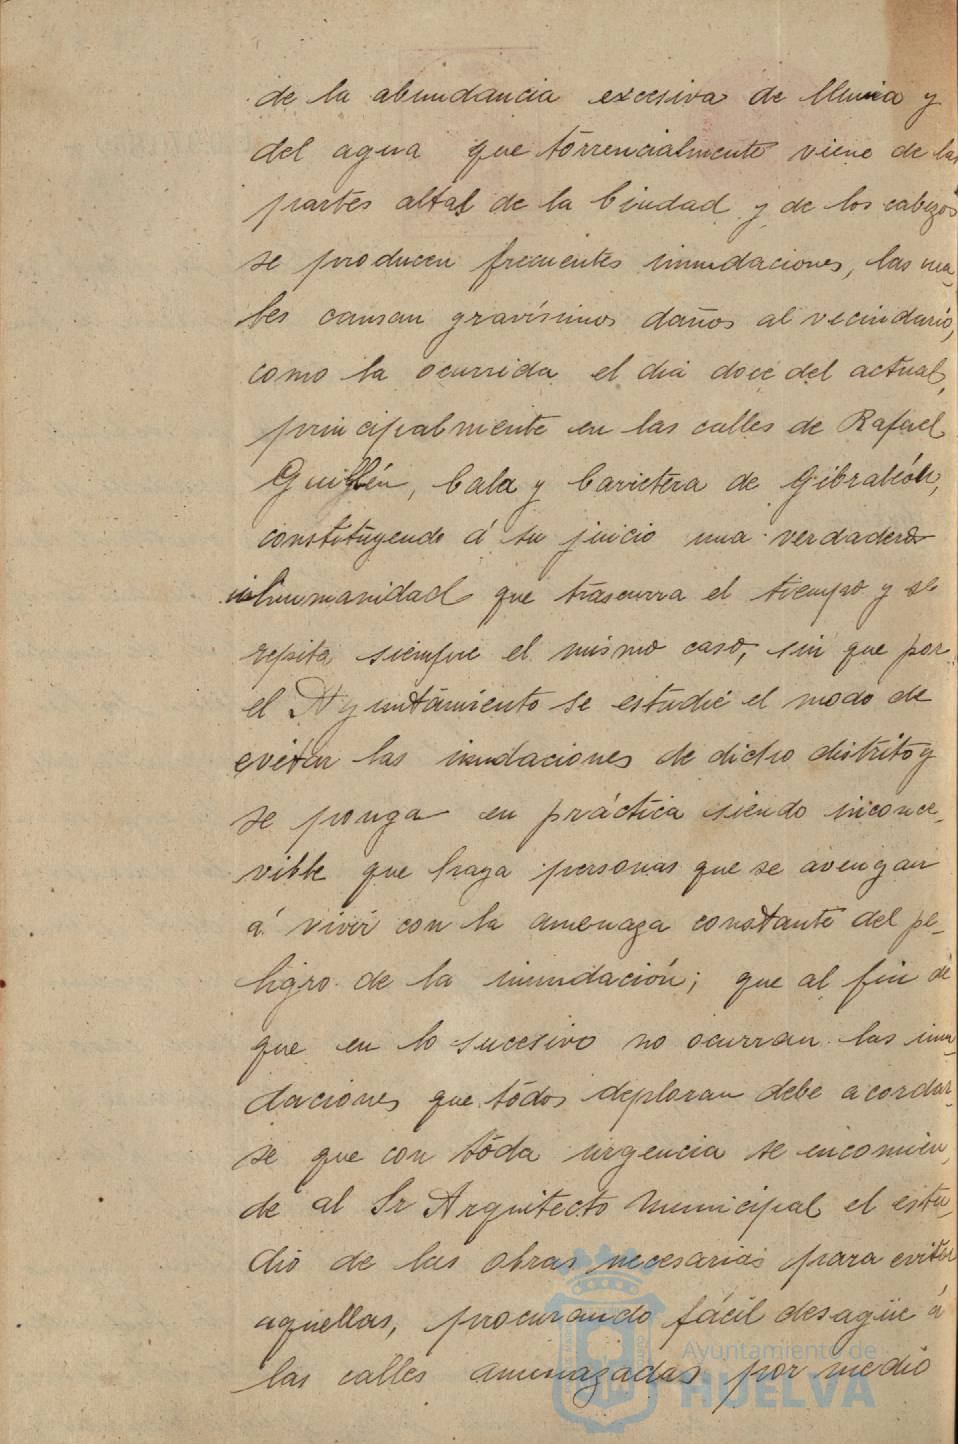 de la abundancia excesiva de lluvia y
del agua que torrencialmente viene de las
partes altas de la Ciudad y de los cabezos
se producen frecuentes inundaciones, las cua-
les causan gravísimos daños al vecindario,
como la ocurrida el dia doce del actual,
principalmente en las calles de Rafael
Guillén, Cala y Carretera de Gibraleón,
constituyendo á su juicio una verdadera
inhumanidad que trascurra el tiempo y se
repita siempre el mismo caso, sin que por
el Ayuntamiento se estudie el modo de
evitar las inundaciones de dicho distrito y
se ponga en práctica siendo inconce-
vible que haya personas que se avengan
á vivir con la amenaza constante del pe-
ligro de la inundación; que al fin de
que en lo sucesivo no ocurran las inun-
daciones que todos deploran debe acordar-
se que con toda urgencia se encomien-
de al Sr Arquitecto Municipal el estu-
dio de las obras necesarias para evitar
aquellas, procurando fácil desagüe á
las calles amenazadas por medio
Ayuntamiento de
HUELVA